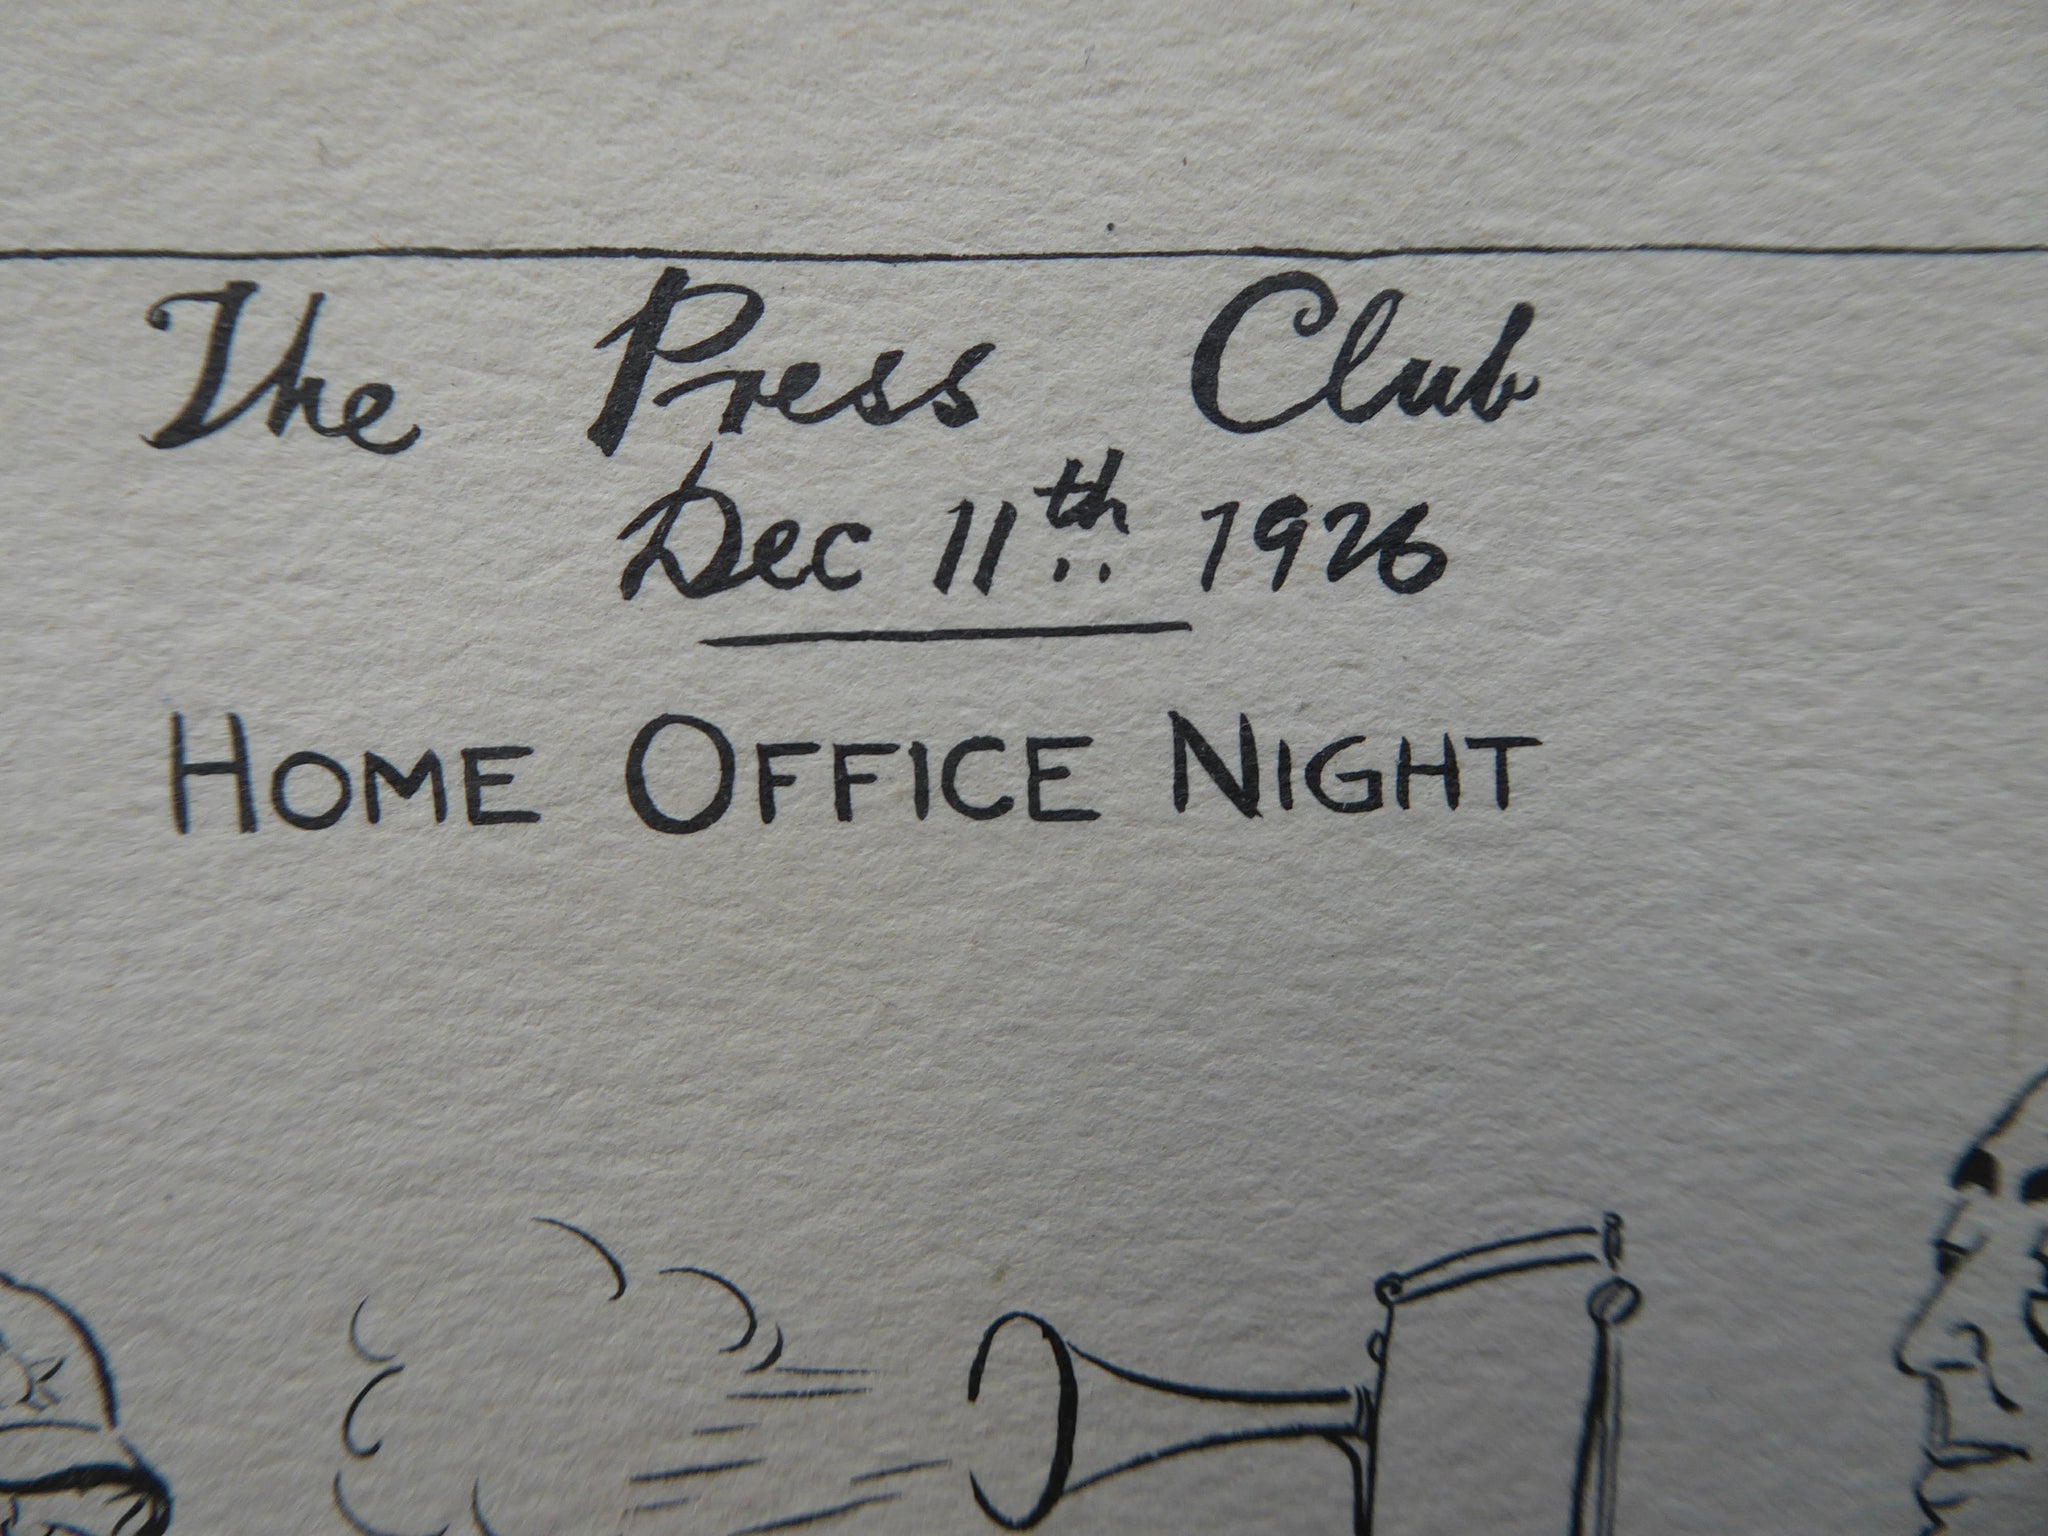 The Press Club
Dec 11th 1926
HOME OFFICE NIGHT